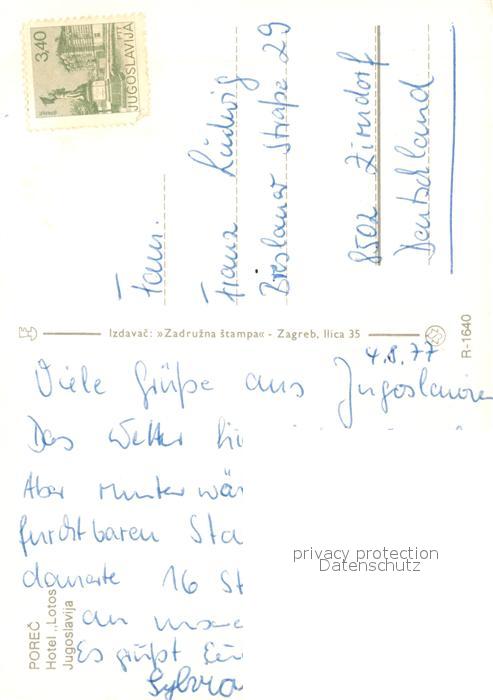 3,40
PTT
JUGOSLAVIJA
Fam.
Franz Ludwig
Breslauer Straße 29
8502 Zirndorf
Deutschland
Izdavač: »Zadružna štampa« - Zagreb, Ilica 35
R-1640
4.8.77
Viele Grüße aus Jugoslavien
Das Wetter hi
Aber runter wär
furchtbaren Sta
dauerte 16 St
an
Es grüßt Eu
Sylvia
POREČ
Hotel „Lotos
Jugoslavija
privacy protection
Datenschutz